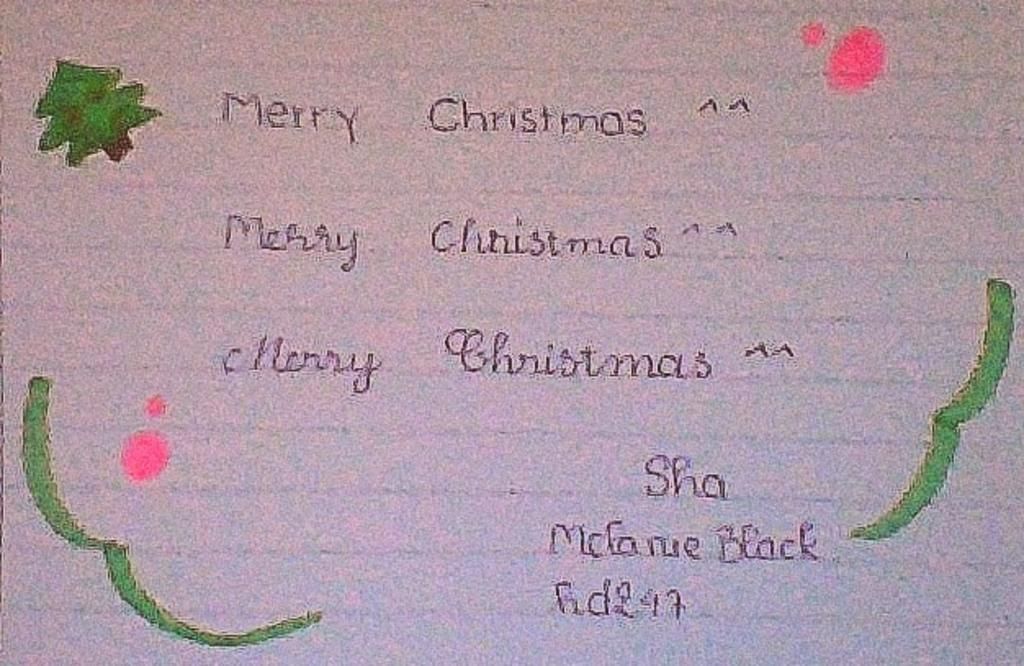 Merry Christmas ^^
Merry Christmas ^^
Merry Christmas ^^
Sha
Melanie Black